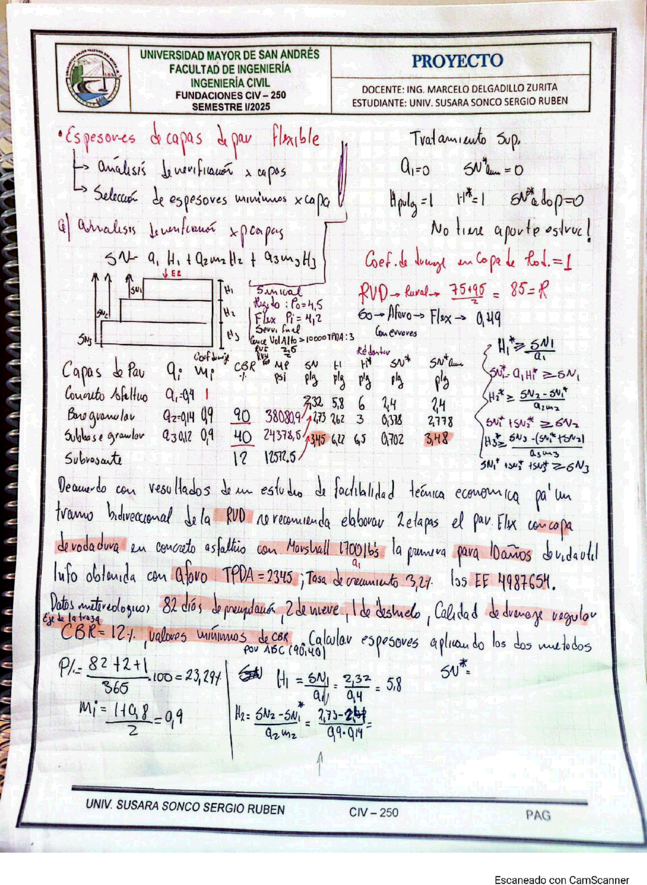 UNIVERSIDAD MAYOR DE SAN ANDRÉS
FACULTAD DE INGENIERÍA
INGENIERÍA CIVIL
FUNDACIONES CIV – 250
SEMESTRE I/2025
PROYECTO
DOCENTE: ING. MARCELO DELGADILLO ZURITA
ESTUDIANTE: UNIV. SUSARA SONCO SERGIO RUBEN
• Espesores de capas de pav flexible
→ análisis de verificación x capas
→ Selección de espesores minimos x capa
a) Analisis de verificación x capas
SN= a1 H1 + a2 m2 H2 + a3 m3 H3
Tratamiento Sup.
a1=0 SN*
=0
H pulg =1 H*=1 SN*adop=0
No tiene aporte estruc!
Coef. de drenaje en capa de Rod. = 1
RVD → Rural → 75+95/2 = 85=R
So → Aforo → Flex → 0,49
Con errores
SN1
SN2
SN3
H1
H2
H3
: Po=4,5
Flex Pi=4,2
Serv final
Vol Alto >10000 TPDA: 3
2,5
H1* ≥ SN1/a1
SN1* = a1 H1* ≥ SN1
H2* ≥ SN2 - SN1*/a2m2
SN1* + SN2* ≥ SN2
H3* ≥ SN3 - (SN1* + SN2*)/a3m3
SN1* + SN2* + SN3* ≥ SN3
Capas de Pav ai mi CBR % MR psi SN plg H plg H* plg SN* plg SN* plg
Concreto Asfaltico a1=0,4 1 2,32 5,8 6 2,4 2,4
Base granular a2=0,14 0,9 90 38080,9 2,73 2,62 3 0,378 2,778
Subbase granular a3 0,12 0,9 40 24378,5 3,45 6,22 6,5 0,702 3,48
Subrasante 12 12572,5
De acuerdo con resultados de un estudio de factibilidad técnica economica pa' un
tramo bidireccional de la RVD se recomienda elaborar 2 etapas el pav. Flex con capa
de rodadura en concreto asfaltico con Marshall 1700 lbs la primera para 10 años de vida util
a1
Info obtenida con aforo TPDA = 2345; Tasa de crecimiento 3,2% los EE 4987654.
Datos metereologicos 82 días de precipitación, 2 de nieve, 1 de deshielo, Calidad de drenaje regular
Eje de la traza
CBR = 12%, valores mínimos de CBR
por ABC (90,40)
Calcular espesores aplicando los dos metodos
P%= 82+2+1/365 . 100 = 23,29%
mi = 1+0,8/2 = 0,9
H1 = SN1/a1 = 2,32/0,4 = 5,8
H2 = SN2 - SN1*/a2m2 = 2,73-2,4/0,9·0,14 =
SN* =
UNIV. SUSARA SONCO SERGIO RUBEN
CIV – 250
PAG
Escaneado con CamScanner